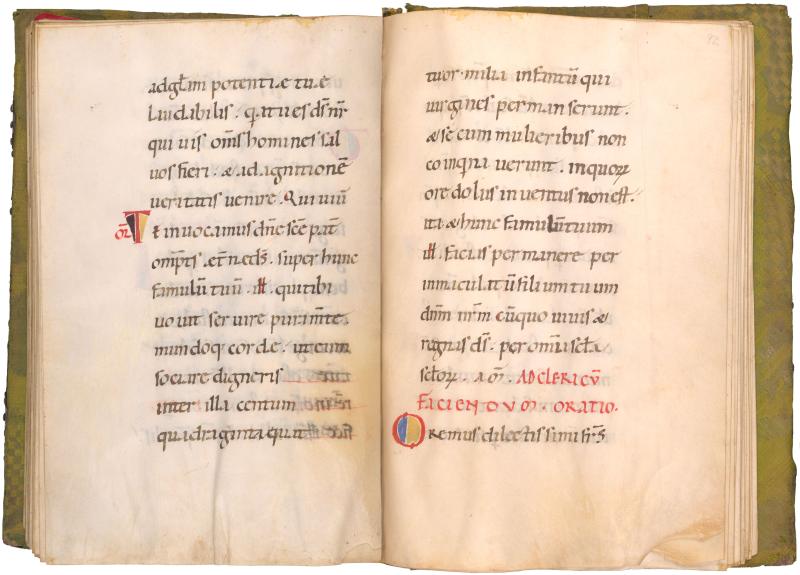 adgl̃am potentiæ tuæ
laudabilis. q̃a tu es d̃s ñr̃
qui uis om̃s homines sal
uos fieri. & ad agnitionẽ
ueritatis uenire. Qui uiuit̃
or̃ Te inuocamus dñe sc̃e pat̃
omp̃ts æt̃næ d̃s. super hunc
famulũ tuũ. ill̃. qui tibi
uouit seruire pura m̃te
mundoq; corde. ut eum
sociare digneris
inter illa centum
quadraginta quat
92
tuor milia infantũ qui
uirgines permanserunt.
& se cum mulieribus non
coinquinauerunt. in quorꝝ
ore dolus inuentus non est̃.
ita & hunc famulũ tuum
ill̃. facias permanere per
inmaculatũ filium tuum
dñm ñr̃m cũ quo uiuis &
regnas d̃s. per omnia sc̃la
sc̃lorꝝ. am̃. AD CLERICṼ
FACIENDVM. ORATIO.
Oremus dilectissimi fr̃s